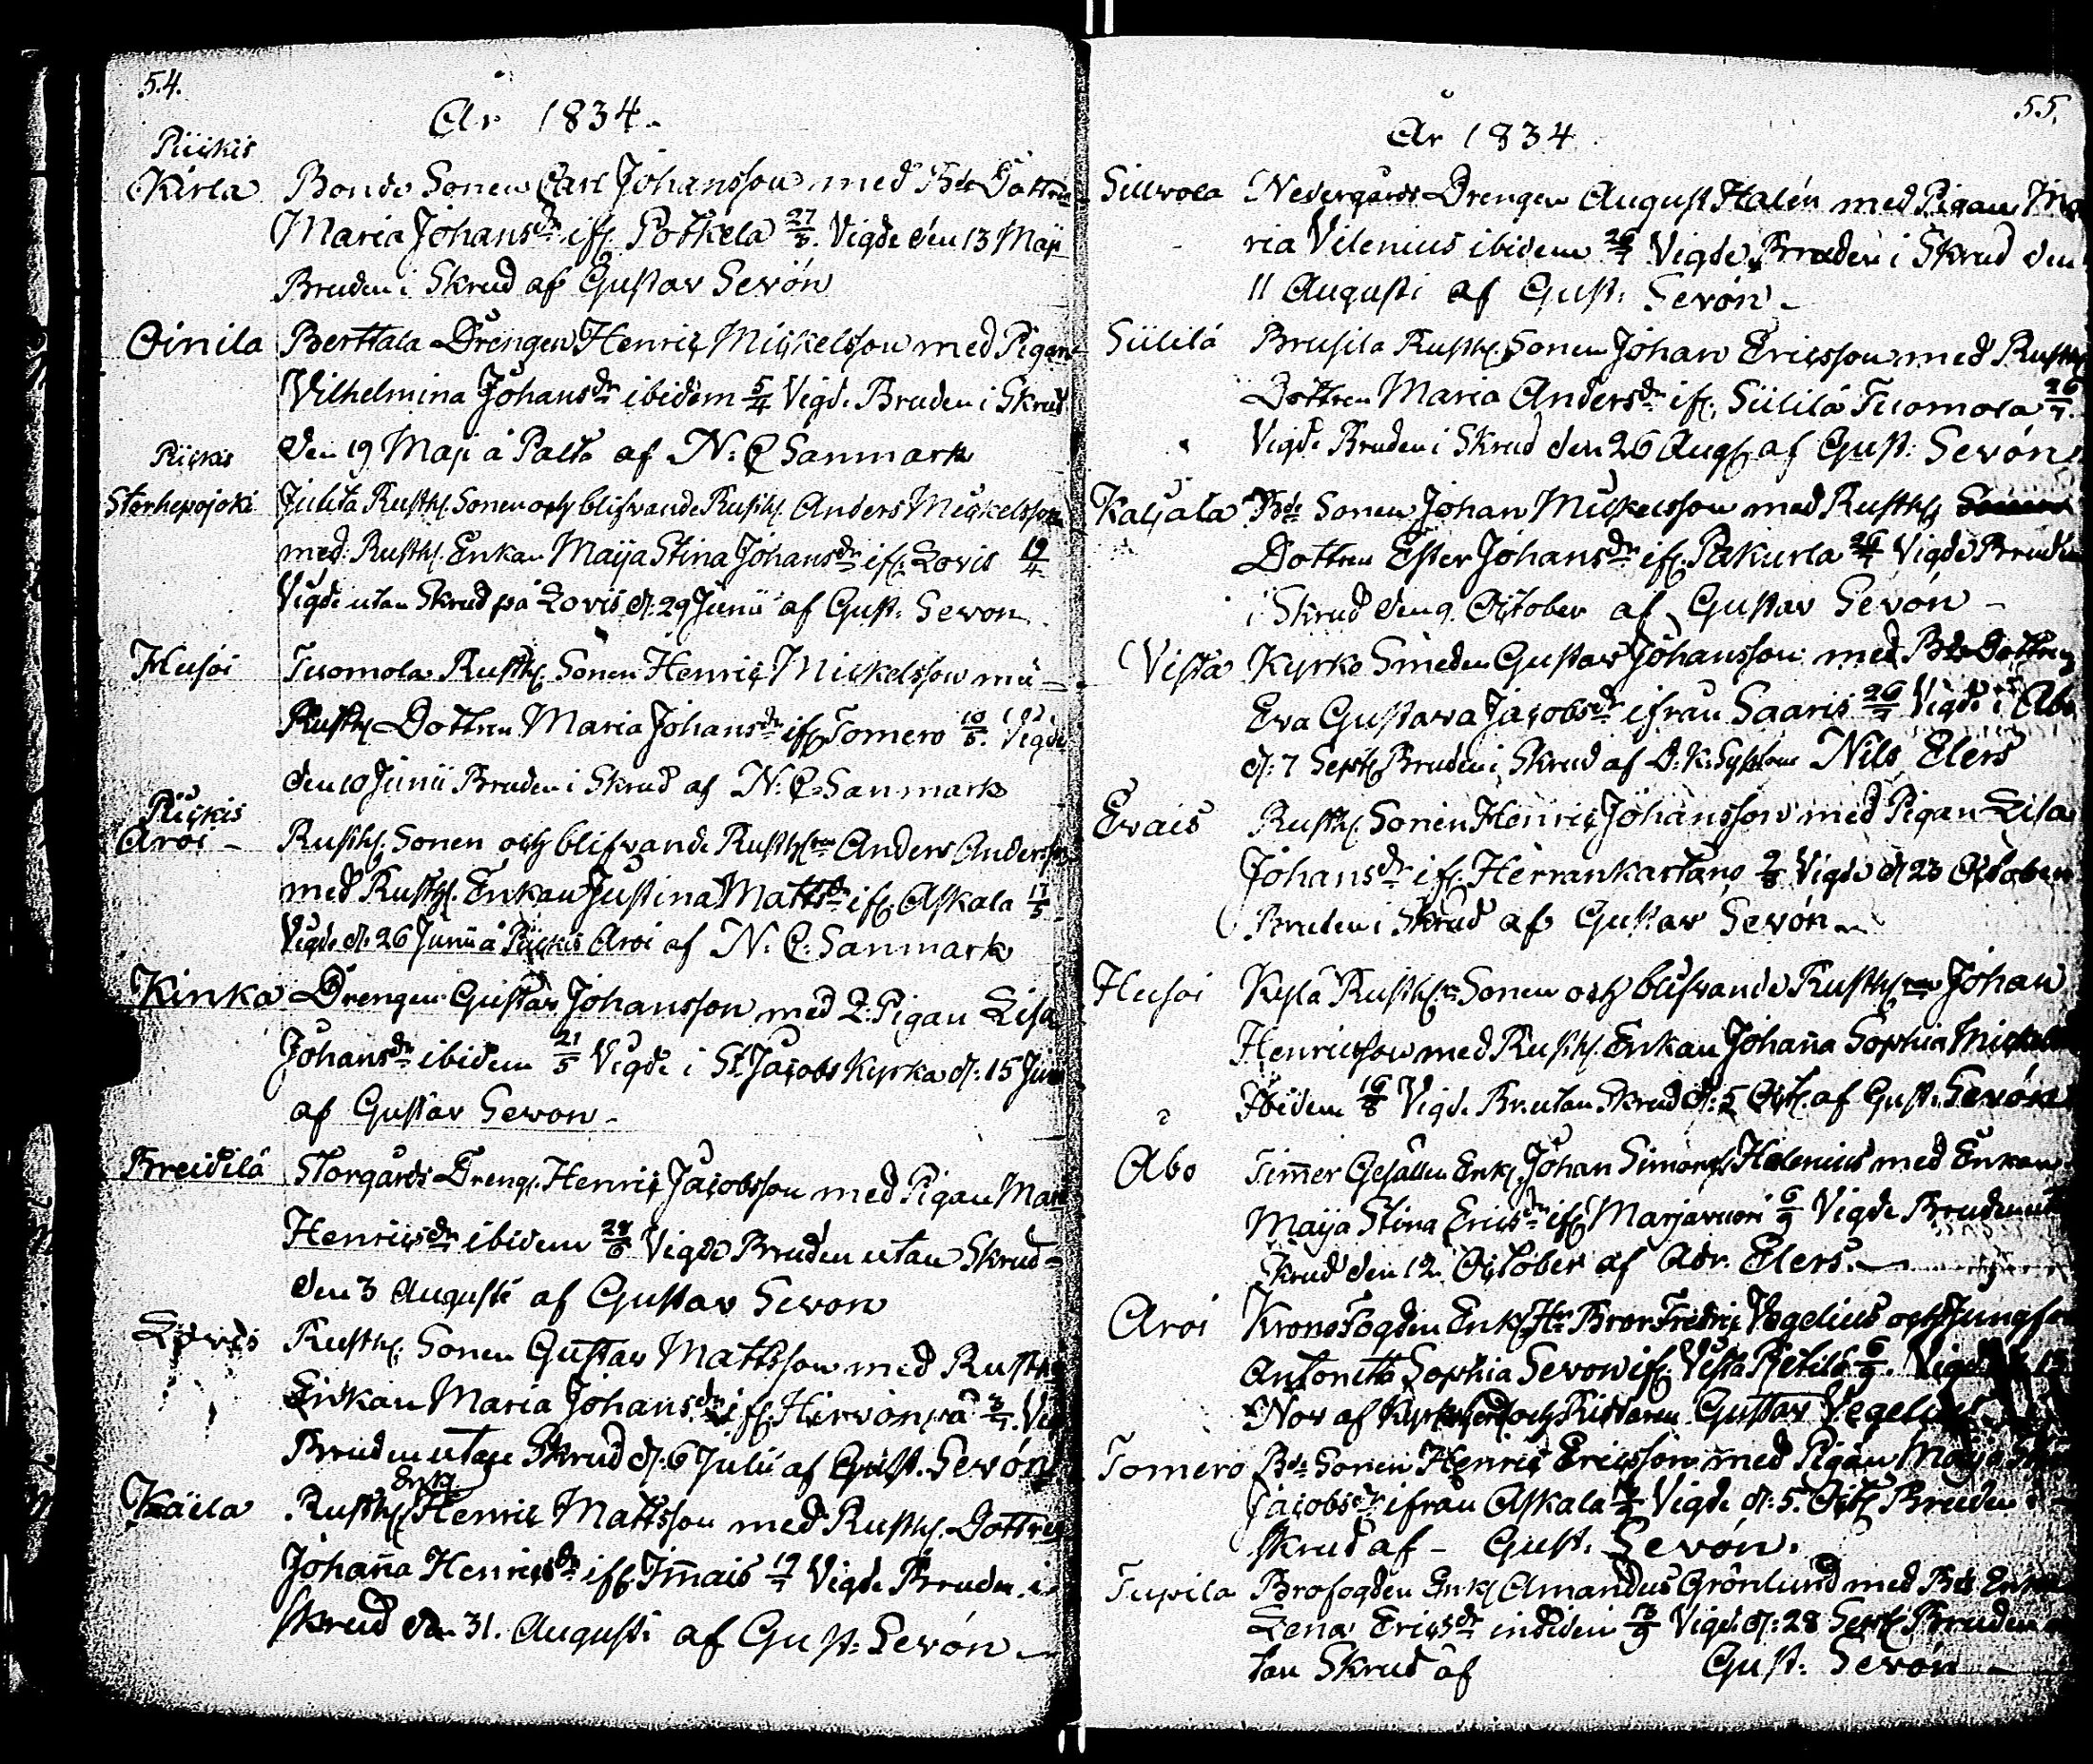 54.
År 1834.
Piickis
Kärla Bonde Sonen Carl Johansson med Bde Dottren
Maria Johansdr ifr. Potkela 27/3. Vigde den 13 Maji
Bruden i Skrud af Gustav Sevón
Oinila Berttala Drengen Henric Mickelsson med Pigan
Vilhelmina Johansdr ibidem 5/4 Vigd. Bruden i Skrud
den 19 Maji å Palto af N. C Sanmark
Piickis
Storhepojoki Julita Rusth. Sonen och blifvande Rusth. Anders Mickelsson
med Rusth. Enkan Maija Stina Johansdr ifr. Lovis 19/4
Vigde utan Skrud på Lovis d. 29 Junii af Gust. Sevon
Husoi Tuomola Rusth. Sonen Henric Mickelsson
Rusth. Dottren Maria Johansdr ifr Tomero 10/5. Vigde
den 10 Junii Bruden i Skrud af N. C. Sanmark
Piickis
Aroi - Rusth. Sonen och blifvande Rusth. Anders Andersson
med Rusth. Enkan Justina Mattsdr ifr. Askala 17/5
Vigde d. 26 Junii å Piickis Aroi af N. C. Sanmark
Kinka Drengen Gustav Johansson med Pigan Lisa
Johansdr ibidem 21/5 Vigde i St Jacobs Kyrka d. 15 Juni
af Gustav Sevon -
Breidilä Storgårds Dreng. Henric Jacobsson med Pigan Mari
Henricsdr ibidem 28/6 Vigde Bruden utan Skrud -
den 3 Augusti af Gustav Sevon
Rusth. Sonen Gustav Mattsson med Rusth.
Enkan Maria Johansdr ifr. Hirvonpä 3/7. Vigd
Bruden utan Skrud d. 6 Julii af Gust. Sevón
Enkl.
Rusth. Henric Mattsson med Rusth. Dottren
Johanna Henricsdr ifr. Immais 19/7 Vigde Bruden i
Skrud den 31. Augusti af Gust: Sevón -
55.
År 1834
Sillvola Nedergårds Drengen August Halén med Pigan Ma
ria Vilenius ibidem 26/7 Vigde Bruden i Skrud den
11 Augusti af Gust: Sevón -
Siililä Brusila Rusth. Sonen Johan Ericsson med Rusth
Dottren Maria Andersdr ifr. Siililä Tuomola 26/7.
Vigde Bruden i Skrud den 26 Aug. af Gust: Sevón
Bde Sonen Johan Mickelsson med Rusth.
Dottren Ester Johansdr ifr. Pakurla 26/7 Vigde Bruden
i Skrud den 9. October af Gustav Sevón -
Vista Kyrko Smeden Gustav Johansson med Bde Dottren
Eva Gustava Jacobsdr ifrån Saaris 26/7 Vigde i Åbo
d. 7 Sept Bruden i Skrud af Nils Elers
Evais Rusth. Sonen Henric Johansson med Pigan Lisa
Johansdr ifr. Herrankartano 2/8 Vigde d 23 October
Bruden i Skrud af Gustav Sevón
Husoi Kylä Rusth. Sonen och blifvande Rusth. Johan
Henricsson med Rusth. Enkan Johanna Sophia
Ibidem 16/8 Vigde Br. utan Skrud d. 5 Oct. af Gust. Sevón
Åbo Timmer Gesällen Enkl. Johan Simons. Helenius med Enkan
Maija Stina Ericsdr ifr Marjavuori 6/9 Vigde Bruden ut
Skrud den 12. October af Adr. Elers.
Aroi Krono Fogden Enkl. Hr Bror Fredric Vegelius och Jungfru
Antonetta Sophia Sevon ifr. Vista Pietilä 6/9. Vigde
Nov af Kyrkoherd. och Riddaren Gustav Vegelius
Tomero Bde Sonen Henric Ericsson med Pigan Maija
Jacobsdr ifrån Askala Vigde d. 5. Oct Bruden i
Skrud af - Gust. Sevón.
Tupila Brofogden Enkl Amandus Grönlund med Bde Enkan
Lena Ericsdr Vigd. d. 28 Sept Bruden u
tan Skrud af Gust. Sevón -